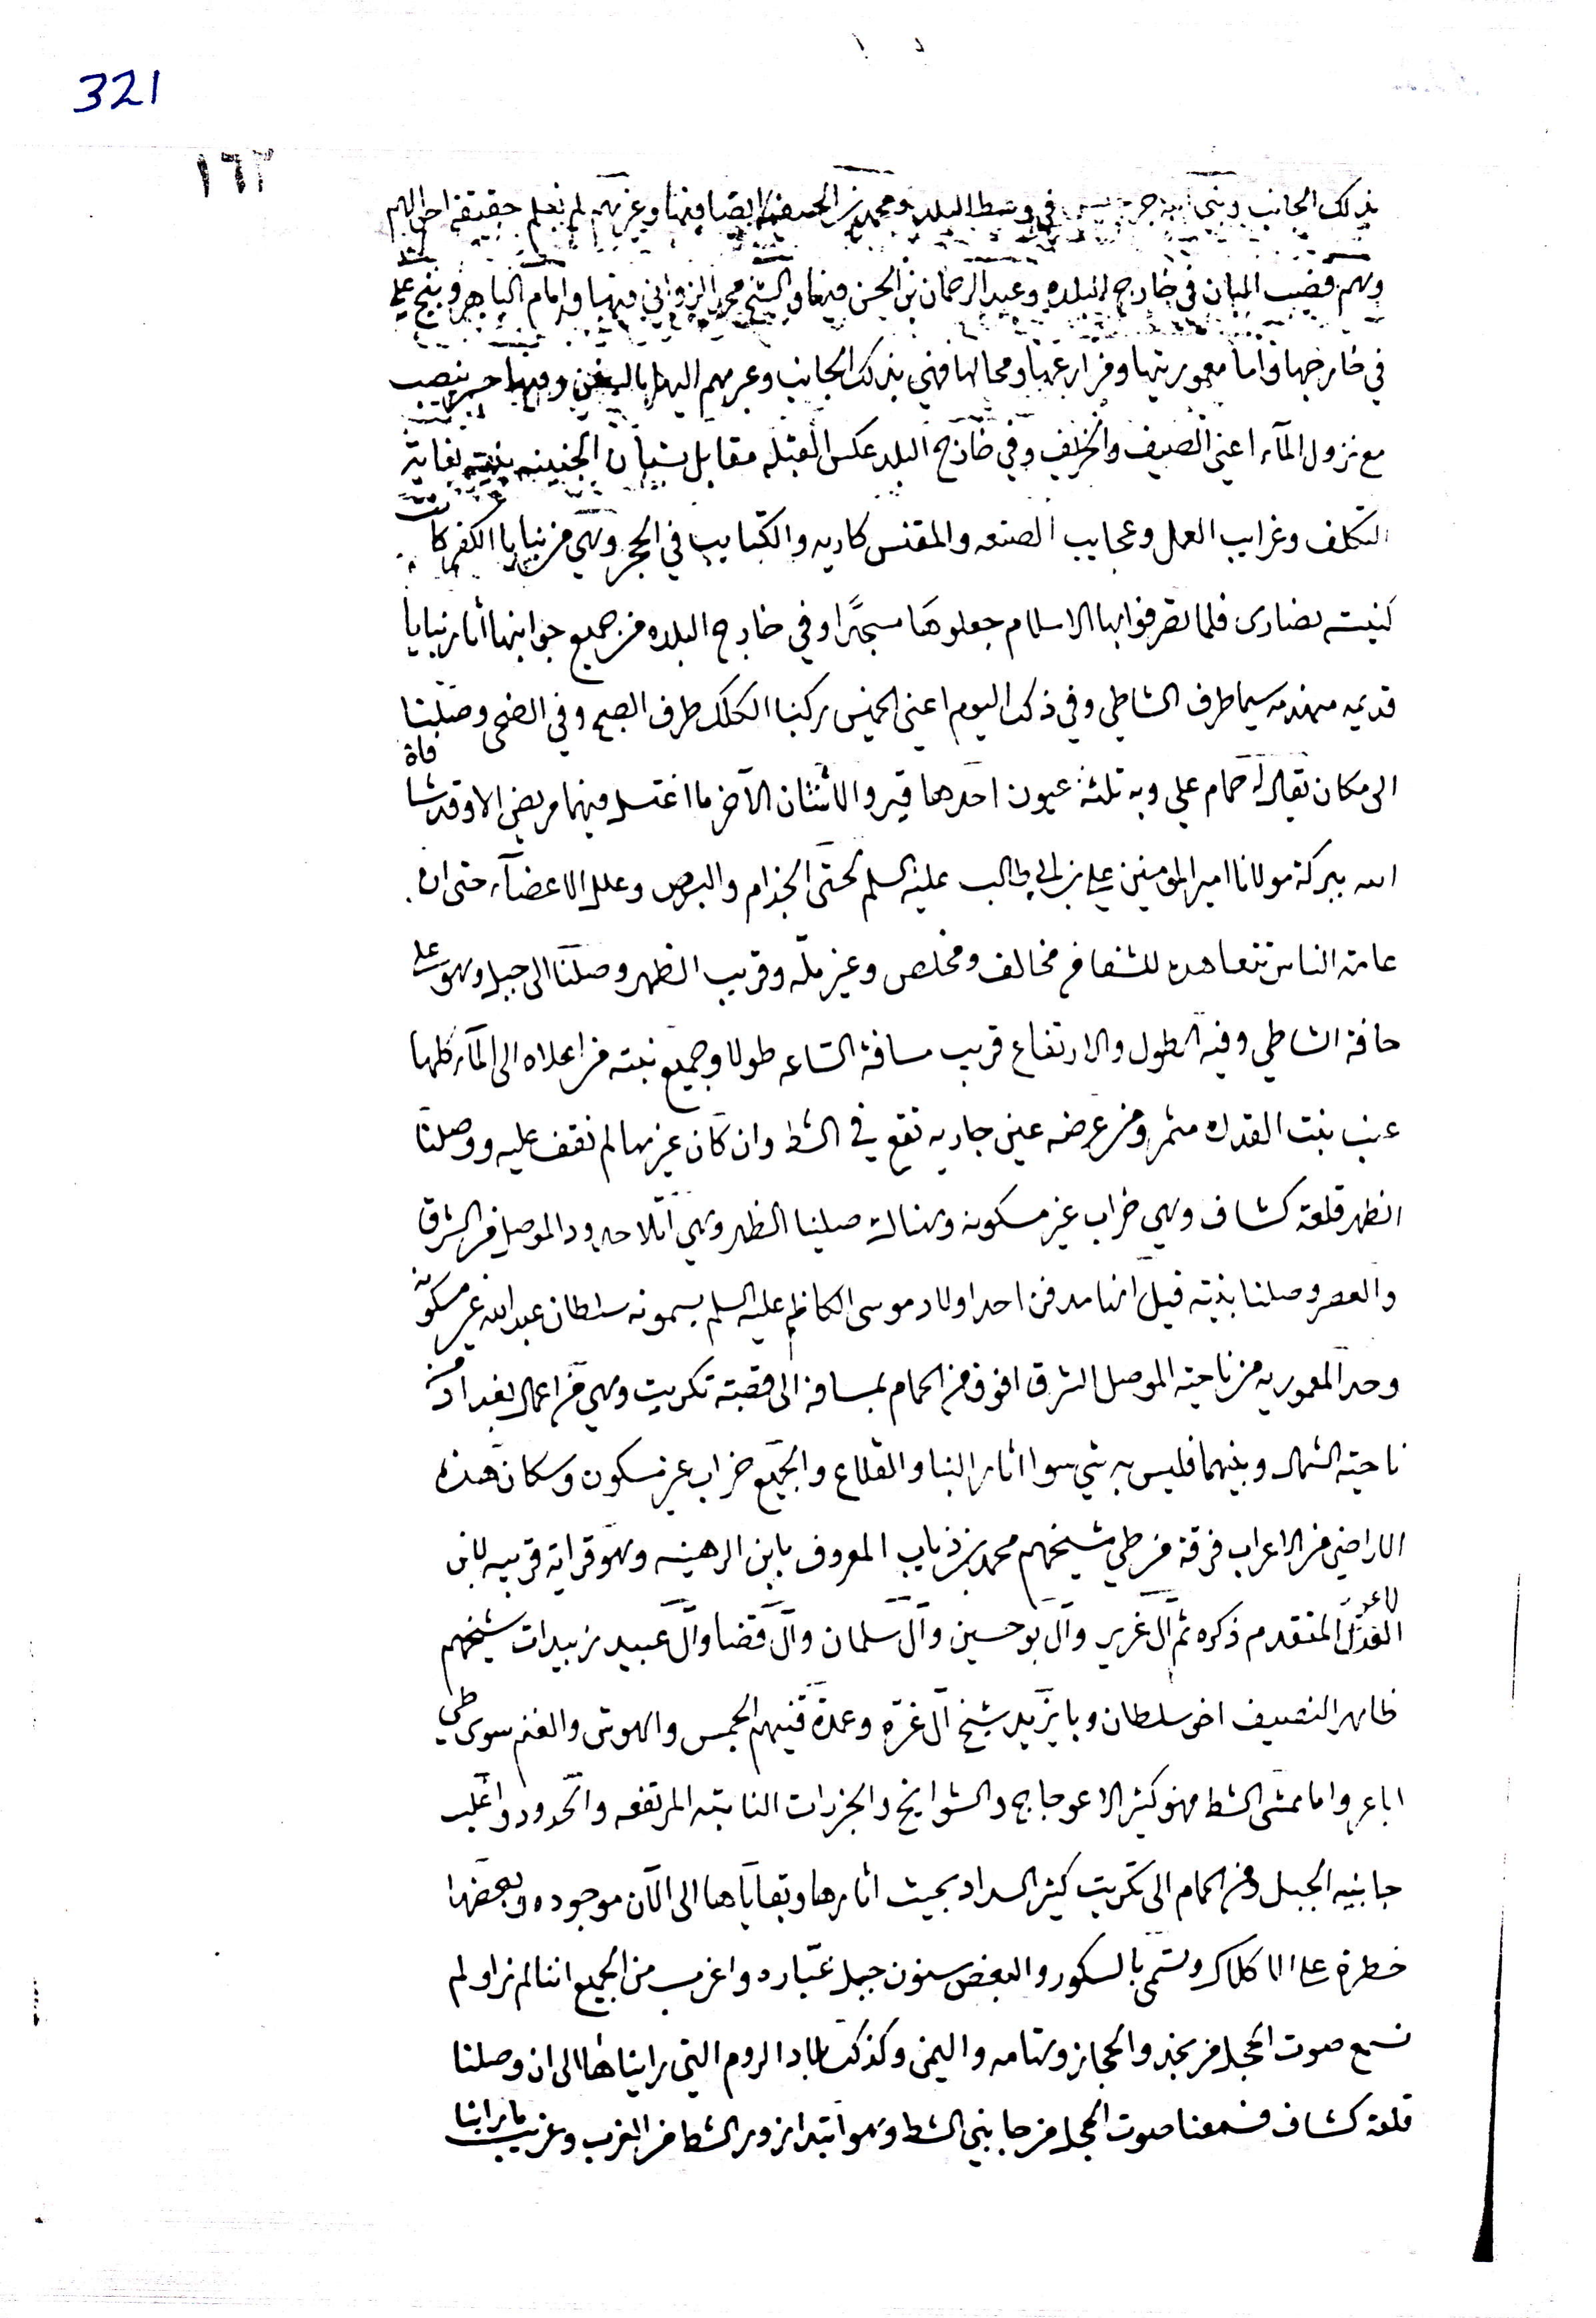 321
١٦٢
بذلك الجانب ونبي الله جرجيس في وسط البلد ومحمد بن الحنفيه ايضا فيها وغيرهم لم نعلم حقيقة احوالهم
ومنهم قضيب البان في خارج البلده وعبد الرحمان بن الحسن فيها والشيخ محمد الزواني فيها وامام الباهر وبنجه علي
في خارجها واما معموريتها ومزارعها ومحالها فهي بذلك الجانب وعبرهم اليها بالسفن وفيها جسر ينصب
مع نزول المآء اعني الصيف والخريف وفي خارج البلد عكس القبله مقابل بستان الجنينه بغاية
التكلف وغرايب العمل وعجايب الصنعه والمقنس كاريه والكتايب في الحجر وهي من بنايا الكفر كانت
كنيسة نصارى فلما تصرفوا بها الاسلام جعلوها مسجدًا وفي خارج البلده من جميع جوانبها اثار بنايا
قديمه منهدمه سيما طرف الشاطي وفي ذلك اليوم اعني الخميس ركبنا الكلك طرف الصبح وفي الضحى وصلنا
الى مكان يقال له حمام علي وبه ثلثة عيون احدها قير والاثنتان الآخر ما اغتسل فيهما مريض الا وقد شافاه
الله ببركة مولانا امير المؤمنين علي بن ابي طالب عليه السلم حتى الجذام والبرص وعلل الاعضآء حتى ان
عامة الناس تتعاهده للشفا من مخالف ومخلص وغير ملّه وقريب الظهر وصلنا الى جبل وهو على
حافة الشاطي وفيه الطول والارتفاع قريب مسافة الساعه طولا وجميع نبته من اعلاه الى المآء كلها
عنب بنت القدره مثمر ومن عرضه عين جاريه تقع في الشط وان كان غيرها لم نقف عليه ووصلنا
الظهر قلعة كشاف وهي خراب غير مسكونه وهناك صلينا الظهر وهي اقلا حدود الموصل من الشرق
والعصر وصلنا بنيّة قيل انها مدفن احد اولاد موسى الكاظم عليه السلم يسمونه سلطان عبد الله غير مسكونه
وحد المعموريه من ناحية الموصل الشرق افوق من الحمام بمسافة الى قصبة تكريت وهي من اعمال بغداد من
ناحية الشمال وبينهما فليس به شي سوا اثار البنا والقلاع والجميع خراب غير مسكون وسكان هذه
الاراضي من الاعراب فرقة من طي شيخهم محمد بن ذياب المعروف بابن الرهينه وهو قرابة قريبه لابن
الاعز المتقدم ذكره ثم آل غرير وآل بو حسين وآل سلمان وآل قضا وآل عبيد زبيدات شيخهم
ظاهر النصيف اخو سلطان وبايزيد شيخ آل غرّه وعمدة قنيهم الجمس والهوش والغنم سوى طي
اباعر واما ممشى الشط فهو كثير الاعوجاج والشواريخ والجزرات النابته المرتفعه والحدود واغلب
جانبيه الجبل ومن الحمام الى تكريت كثير السداد بحيث اثارها وبقاياها الى الآن موجوده وبعضها
خطرة على الاكلاك وتسمى بالسكور والبعض سنون جبل عبّاره واغرب من الجميع اننا لم نرا ولم
نسمع صوت الحجل من نجد والحجاز وتهامه واليمن وكذلك بلاد الروم التي رايناها الى ان وصلنا
قلعة كشاف فسمعنا صوت الحجل من جانبي الشط وهو ابتدا زور الشط من الغرب وغريب ما راينا